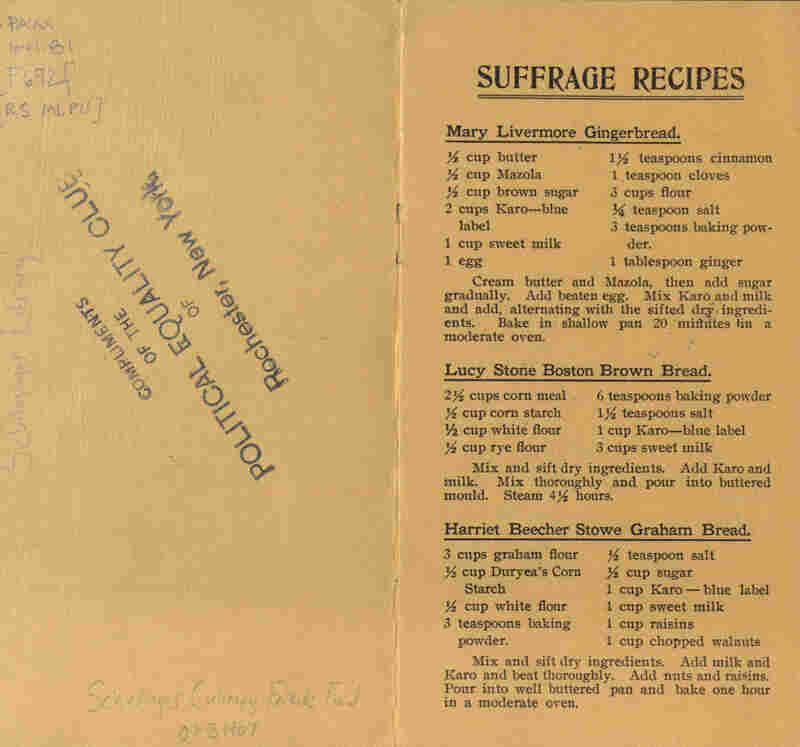 COMPLIMENTS
OF THE
POLITICAL EQUALITY CLUB
OF
Rochester, New York
SUFFRAGE RECIPES
Mary Livermore Gingerbread.
½ cup butter
½ cup Mazola
½ cup brown sugar
2 cups Karo—blue
label
1 cup sweet milk
1 egg
1½ teaspoons cinnamon
1 teaspoon cloves
3 cups flour
¼ teaspoon salt
3 teaspoons baking pow-
der.
1 tablespoon ginger
Cream butter and Mazola, then add sugar
gradually. Add beaten egg. Mix Karo and milk
and add, alternating with the sifted dry ingredi-
ents. Bake in shallow pan 20 minutes in a
moderate oven.
Lucy Stone Boston Brown Bread.
2½ cups corn meal
½ cup corn starch
½ cup white flour
½ cup rye flour
6 teaspoons baking powder
1½ teaspoons salt
1 cup Karo—blue label
3 cups sweet milk
Mix and sift dry ingredients. Add Karo and
milk. Mix thoroughly and pour into buttered
mould. Steam 4½ hours.
Harriet Beecher Stowe Graham Bread.
3 cups graham flour
½ cup Duryea's Corn
Starch
½ cup white flour
3 teaspoons baking
powder.
½ teaspoon salt
½ cup sugar
1 cup Karo — blue label
1 cup sweet milk
1 cup raisins
1 cup chopped walnuts
Mix and sift dry ingredients. Add milk and
Karo and beat thoroughly. Add nuts and raisins.
Pour into well buttered pan and bake one hour
in a moderate oven.